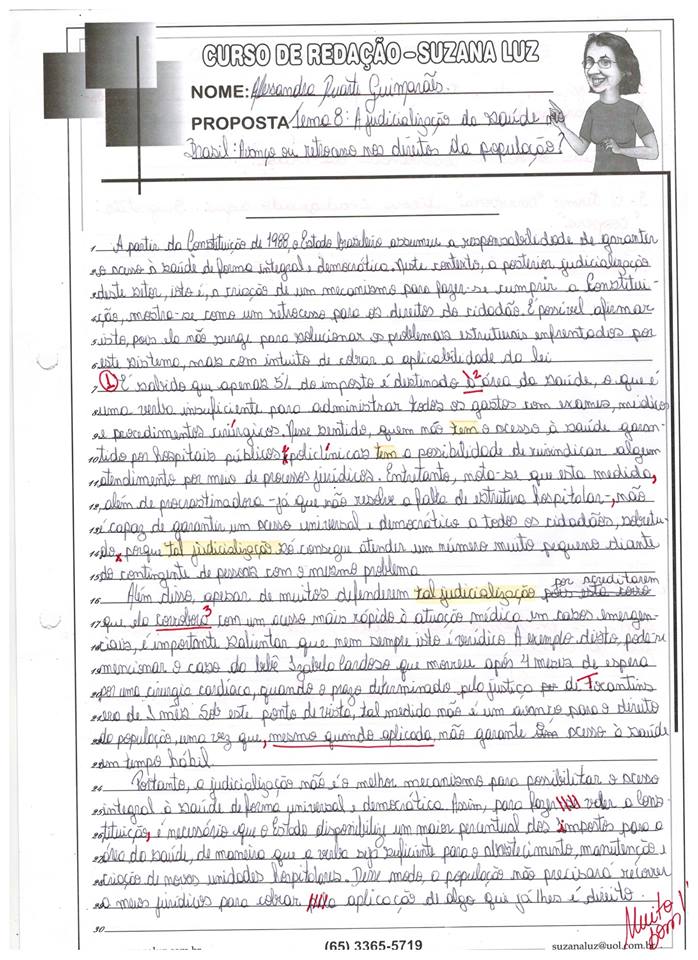 CURSO DE REDAÇÃO – SUZANA LUZ
NOME: Alessandra Duarte Guimarães.
PROPOSTA Tema 8: A judicialização da saúde no
Brasil: Avanço ou retrocesso nos direitos da população?
1 A partir da Constituição de 1988, o Estado brasileiro assumiu a responsabilidade de garantir
2 o acesso à saúde de forma integral e democrática. Neste contexto, a posterior judicialização
3 deste setor, isto é, a criação de um mecanismo para fazer-se cumprir a Constitui-
4 ção, mostra-se como um retrocesso para os direitos do cidadão. É possível afirmar
5 isto, pois ela não surge para solucionar os problemas estruturais enfrentados por
6 este sistema, mas com intuito de cobrar a aplicabilidade da lei
7 1 É sabido que apenas 5% do imposto é destinado à 2 área da saúde, o que é
8 uma verba insuficiente para administrar todos os gastos com exames, médicos
9 e procedimentos cirúrgicos. Nesse sentido, quem não tem o acesso à saúde garan-
10 tido por hospitais públicos e policlínicas tem a possibilidade de reivindicar algum
11 atendimento por meio de processos jurídicos. Entretanto, nota-se que esta medida,
12 além de procrastinadora - já que não resolve a falta de estrutura hospitalar -, não
13 é capaz de garantir um acesso universal e democrático a todos os cidadãos, sobretu-
14 do, porque tal judicialização só consegue atender um número muito pequeno diante
15 do contingente de pessoas com o mesmo problema
16 Além disso, apesar de muitos defenderem tal judicialização por acreditarem
17 que ela corrobora 3 com um acesso mais rápido à atuação médica em casos emergen-
18 ciais, é importante salientar que nem sempre isto é verídico A exemplo disto, pode-se
19 mencionar o caso da bebê Izabela Cardoso que morreu após 4 meses de espera
20 por uma cirurgia cardíaca, quando o prazo determinado pela justiça de Tocantins
21 era de 1 mês Sob este ponto de vista, tal medida não é um avanço para o direito
22 da população, uma vez que, mesmo quando aplicada, não garante o acesso à saúde
23 em tempo hábil.
24 Portanto, a judicialização não é o melhor mecanismo para possibilitar o acesso
25 integral à saúde de forma universal e democrática Assim, para fazer valer a Cons-
26 tituição, é necessário que o Estado disponibilize um maior percentual dos impostos para a
27 área da saúde, de maneira que a verba seja suficiente para o abastecimento, manutenção e
28 criação de novas unidades hospitalares. Desse modo a população não precisará recorrer
29 a meios jurídicos para cobrar a aplicação de algo que já lhes é direito.
30
Muito bom!
(65) 3365-5719
suzanaluz@uol.com.br